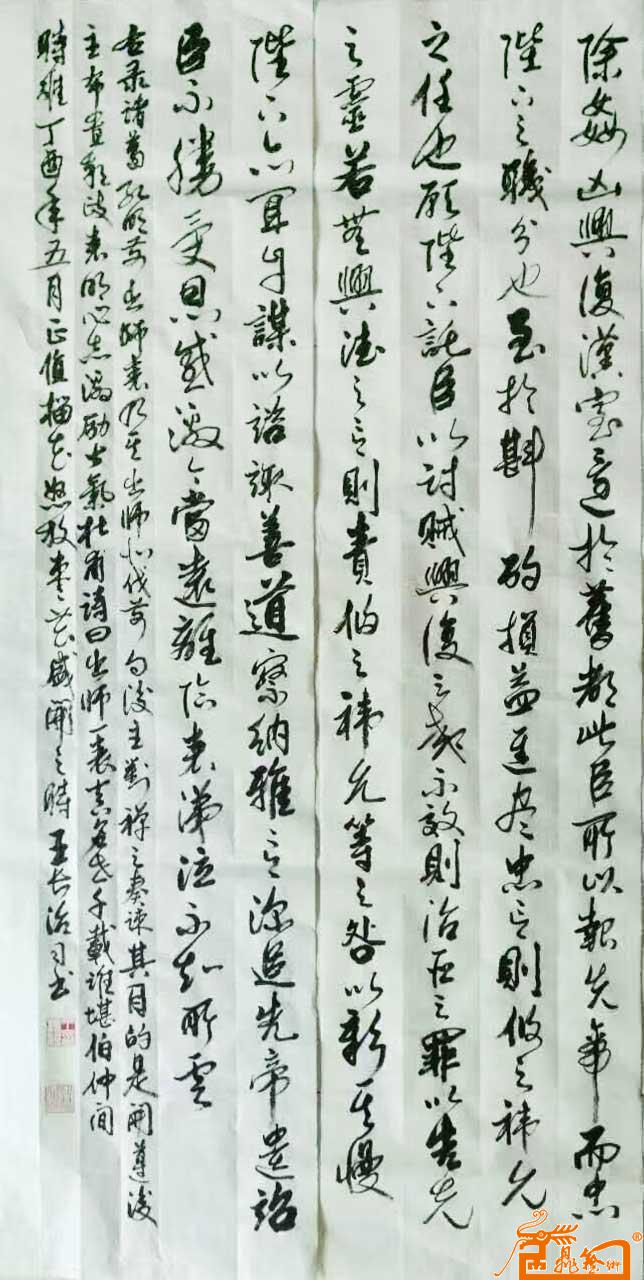 除姦凶興復漢室還於舊都此臣所以報先帝而忠
陛下之職分也至於斟酌損益進盡忠言則攸之禕允
之任也願陛下託臣以討賊興復之效不效則治臣之罪以告先
之靈若無興德之言則責攸之禕允等之咎以彰其慢
陛下亦宜自謀以諮諏善道察納雅言深追先帝遺詔
臣不勝受恩感激今當遠離臨表涕泣不知所雲
右录諸葛孔明前出師表乃其出師北伐前向後主劉禪之奏疏其目的是開導後
主布貴彰波表明心志激励士氣杜甫詩曰出師一表真名世千載誰堪伯仲间
時維丁酉年五月正值榴花怒放枣花盛開之時王长治习书
鼎藝術